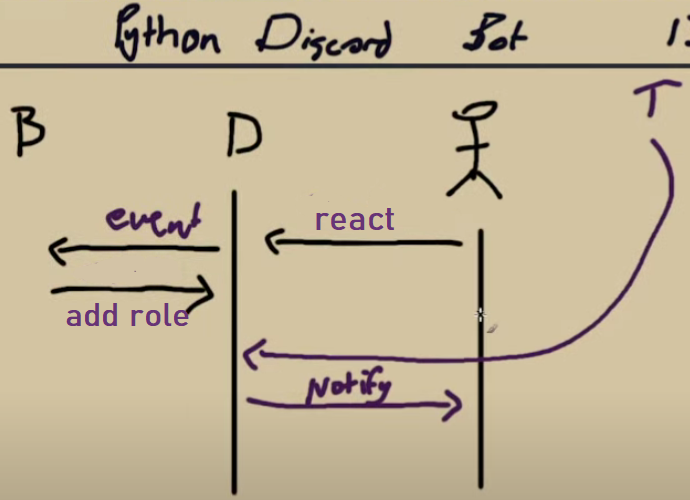 Python Discord Bot
T
B D
event react
add role
Notify